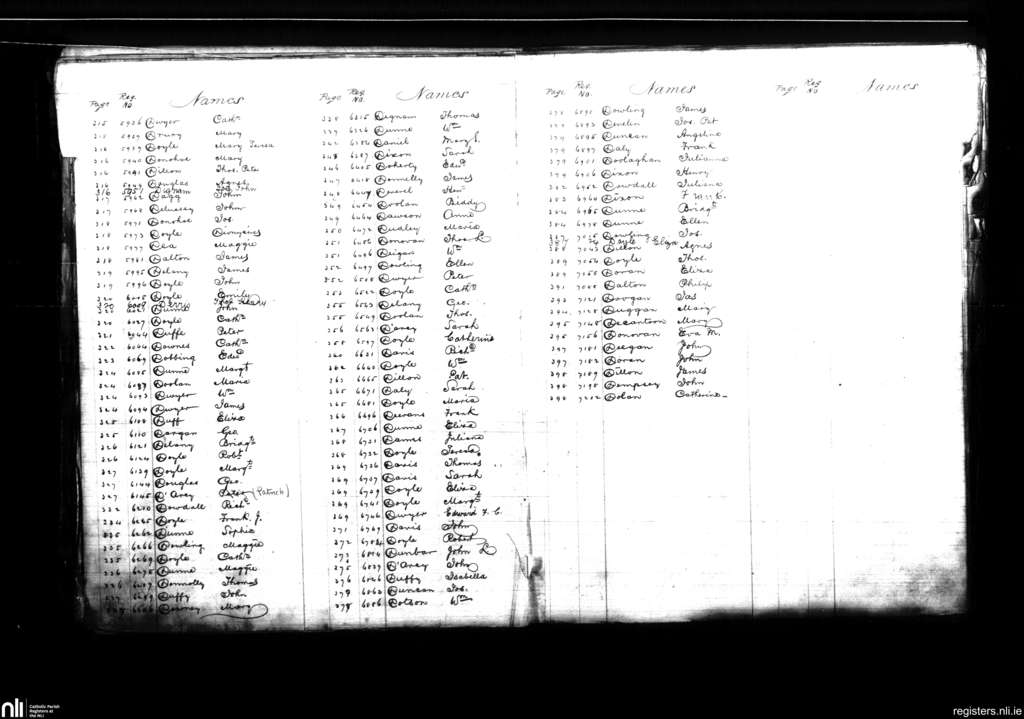 Page Reg. No Names
215 5926 Dwyer Cathe
215 5929 Drury Mary
215 5939 Doyle Mary Teresa
216 5940 Donohoe Mary
216 5941 Dillon Thos. Peter
216 5949 Douglas Agnes
316 5957 Dignam Jos. John
217 5962 Dagg John
217 5968 Delmessy John
218 5971 Donohoe Jos.
218 5973 Doyle Dionysius
218 5977 Dea Maggie
218 5981 Dalton James
219 5995 Delany James
219 5996 Doyle John
220 6005 Doyle Emily
220 6009 Derry
220 6021 Dunne John
220 6027 Doyle Cathe
221 6044 Duffe Peter
222 6064 Downes Cathe
223 6069 Dobbing Edwd
224 6085 Dunne Margt
224 6087 Doolan Maria
224 6093 Dwyer Wm
224 6094 Dwyer James
225 6108 Duff Eliza
225 6110 Dargan Geo
226 6121 Delany Bridgt
226 6124 Doyle Robt
227 6139 Doyle Margt
227 6144 Douglas Geo.
227 6145 D'Arcy Peter (Patrick)
232 6210 Dowdall Richd
234 6245 Doyle Frank J.
235 6262 Dunne Sophia
235 6266 Dowling Maggie
235 6269 Doyle Cathe
236 6275 Dunne Maggie
236 6287 Donnolly Thomas
Duffy John
Mary
Page Reg No. Names
6315 Degnam Thomas
6326 Dunne Wm
6386 Daniel Mary J.
6387 Dixon Sarah
246 6405 Doherty Edwd
247 6418 Donnelly James
248 6449 Deverel Hen
249 6454 Doolan Biddy
249 6464 Dawson Anne
250 6472 Dudley Maria
251 6486 Donovan Thos
251 6486 Deigan Wm
252 6497 Dowling Ellen
252 6508 Dwyer Peter
253 6522 Doyle Cathe
255 6543 Delany Geo.
255 6549 Doolan Thos.
256 6562 Darcy Sarah
258 6597 Doyle Catherine
260 6631 Davis Richd
262 6660 Doyle Wm
263 6665 Dillon Pat.
265 6671 Daly Sarah
265 6681 Doyle Maria
266 6696 Deevans Frank
267 6706 Dunne Eliza
268 6721 Dames Juliana
268 6722 Doyle Teresa
269 6736 Davis Thomas
269 6737 Davis Sarah
269 6739 Doyle Eliza
269 6741 Doyle Margt
269 6746 Dwyer Edward F. C.
271 6769 Davis John
272 6784 Doyle Robert
273 6804 Dunbar John
275 6027 D'Arcy John
276 6046 Duffy Isabella
278 6063 Duncan Jos.
278 6086 Dotson Wm
Page Reg. No. Names
278 6891 Dowling James
279 6893 Devlin Jos. Pat
279 6895 Duncan Angeline
279 6897 Daly Frank
279 6901 Doolaghan Julianna
279 6906 Dixon Henry
282 6952 Dowdall Juliana
283 6960 Dixon
284 6985 Dunne Bridgt
284 6998 Dunne Ellen
287 7025 Dowling Jos.
Doyle Eliza
288 7043 Dillon Agnes
289 7054 Doyle Thos.
289 7055 Doran Eliza
291 7088 Dalton Philip
293 7121 Dovgan Jas
294 7128 Duggan Mary
295 7145 Decantoon Mary
295 7156 Donovan Eva M.
297 7181 Deegan John
297 7182 Doran John
298 7189 Dillon James
298 7198 Dempsey John
298 7202 Dolan Catherine
Page Reg No. Names
nli
Catholic Parish
Registers at
the NLI
registers.nli.ie